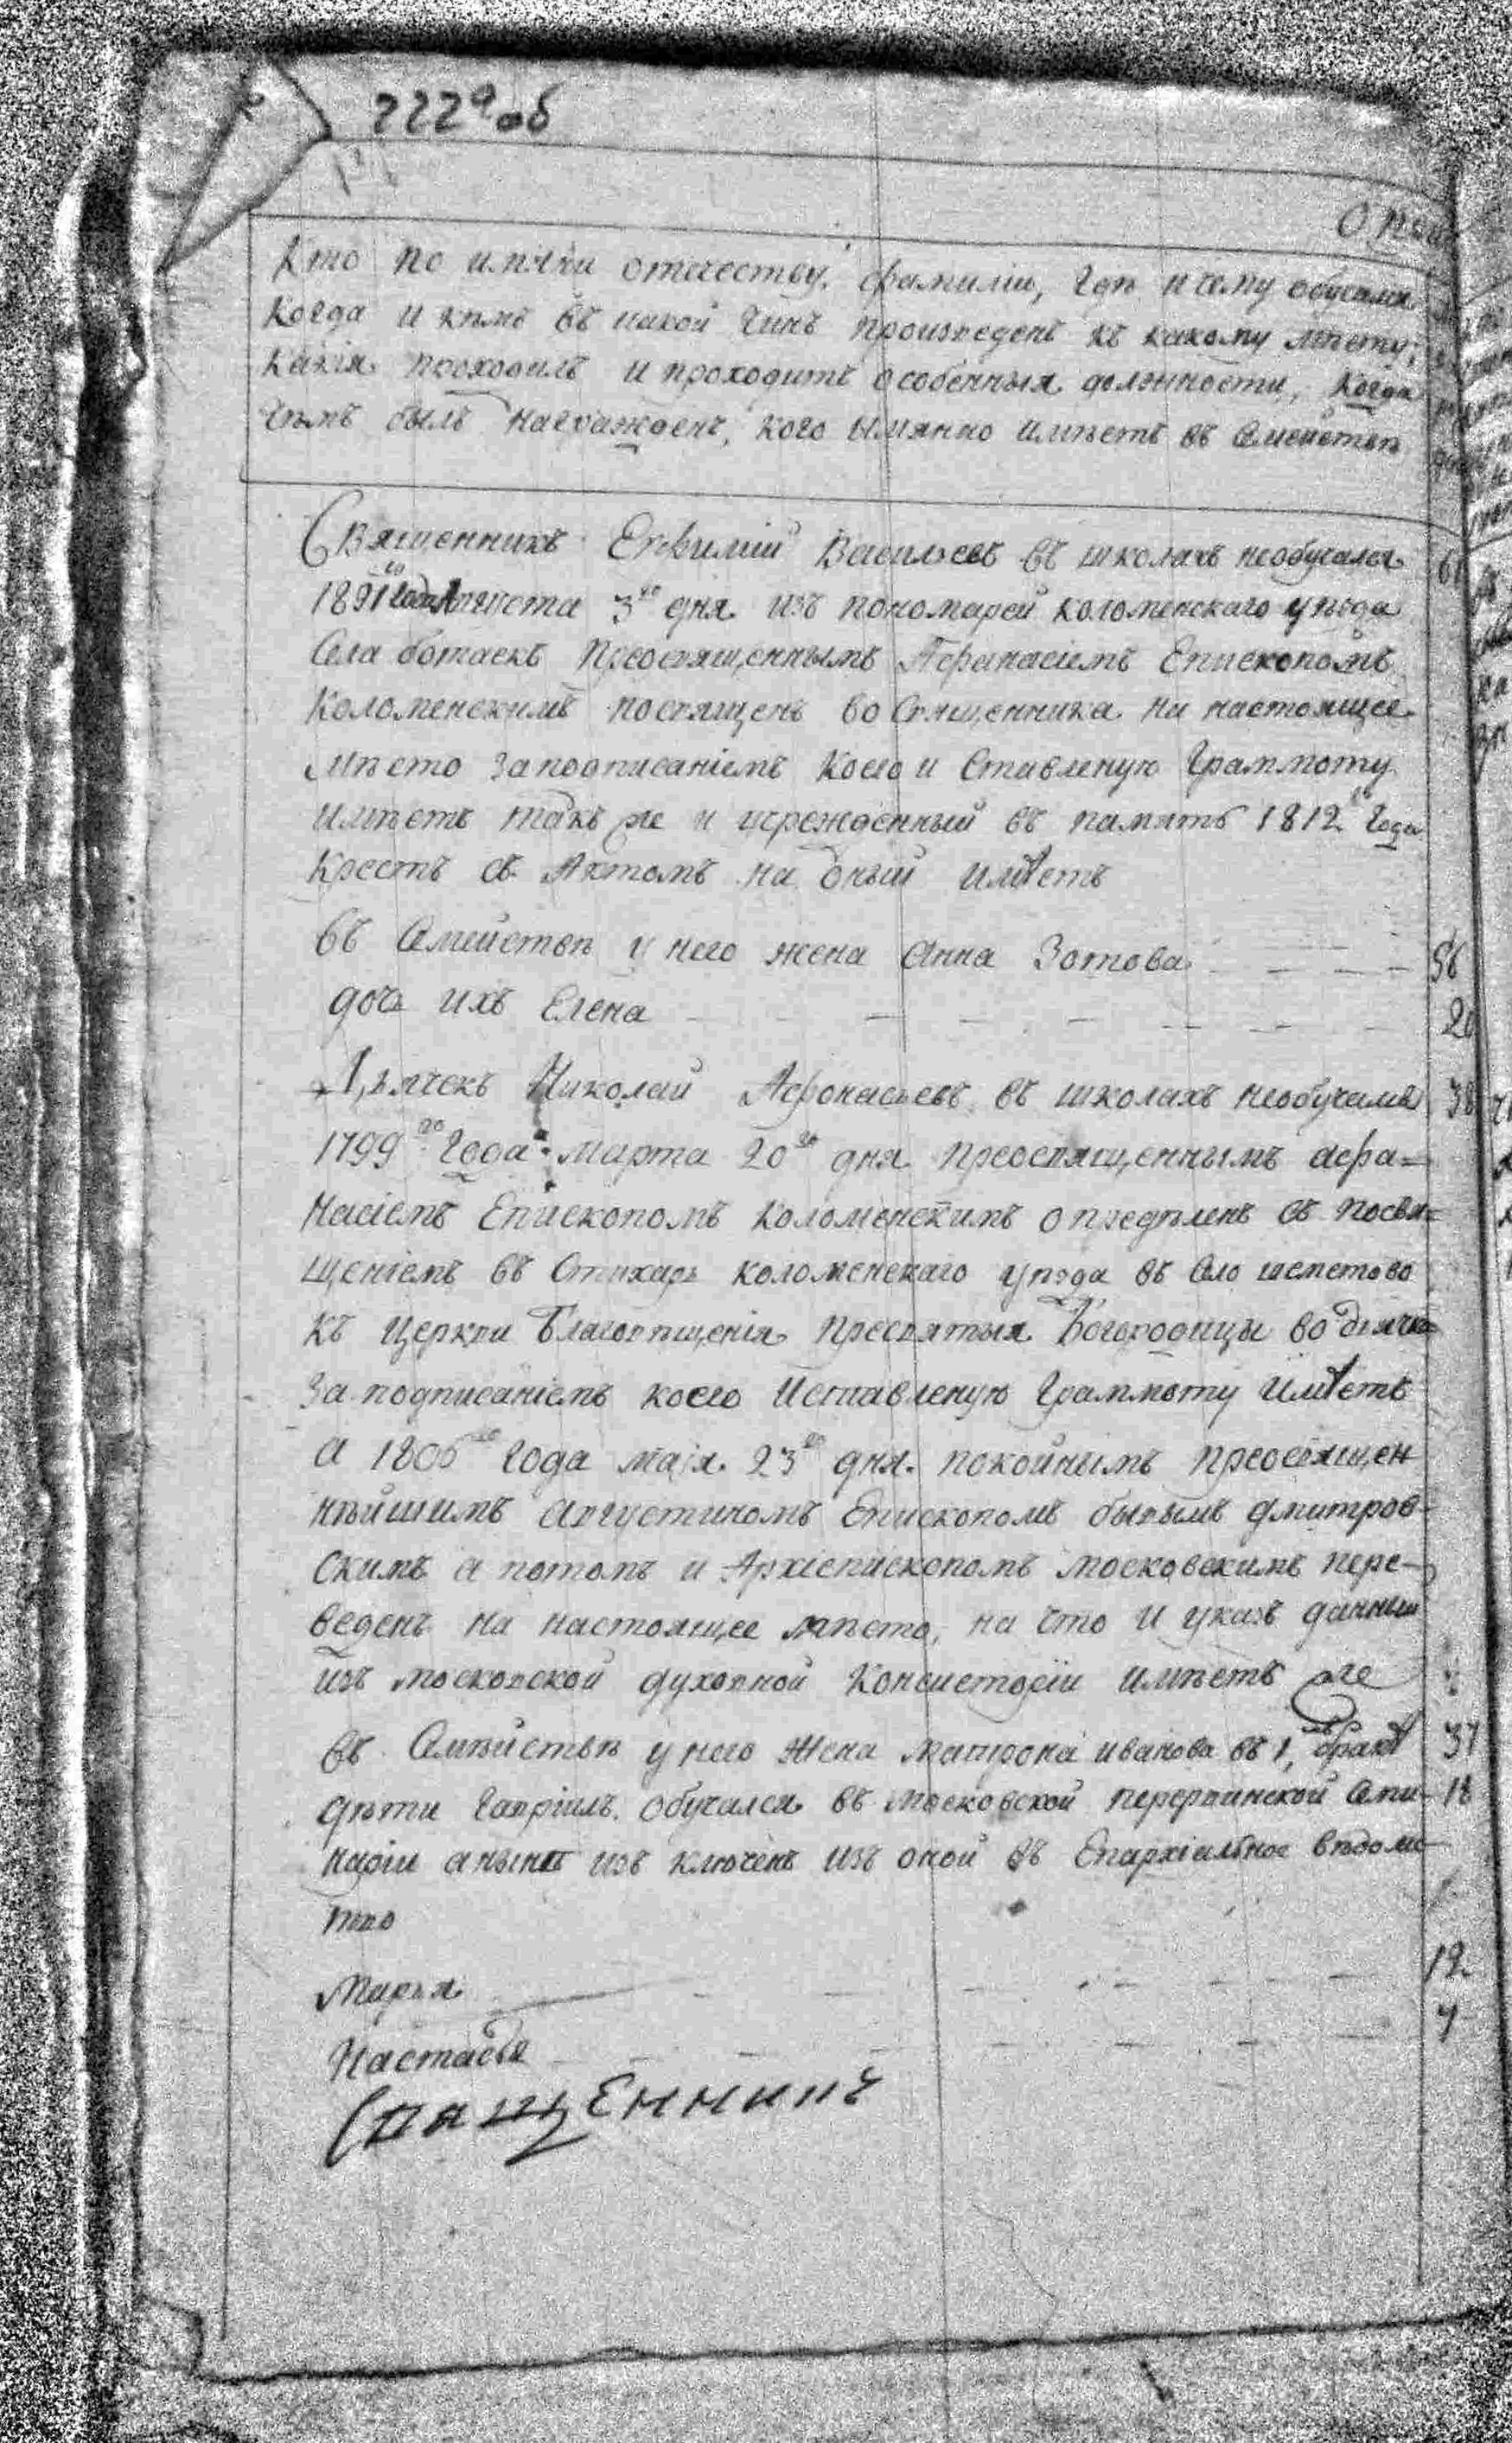 222 об
О
Кто по имяни отечеству, фамиліи, гдѣ и чему обучался
Когда и кѣмъ въ какой чинъ произведенъ къ какому мѣсту;
какія проходилъ и проходитъ особенныя должности, когда
чѣмъ былъ награжденъ, кого имянно имѣетъ въ Семействѣ
Священникъ Евфимій Васильевъ въ школахъ необучался 61
1801го года Августа 3го дня изъ пономарей коломенскаго уѣзда
Села Преосвященнымъ Афанасіемъ Епископомъ
Коломенскимъ посвященъ во Священника на настоящее
мѣсто заподписаніемъ Коего и Ставленую Граммоту
имѣетъ такъ же и учрежденный въ память 1812го Года
Крестъ съ Актомъ на оный имѣетъ
въ Семействѣ у него жена Анна Зотова 56
дочь ихъ Елена 20
Дьячекъ Николай Афонасьевъ въ школахъ необучался 38
1799го Года Марта 20го дня преосвященнымъ Афа=
насіемъ Епископомъ Коломенскимъ опредѣленъ съ посвя=
щеніемъ въ Стихарь коломенскаго уѣзда въ Село шеметово
къ Церкви Благовѣщенія Пресвятыя Богородицы во дьячка
За подписаніемъ коего и ставленую Граммоту имѣетъ
а 1806го Года маія 23го дня покойнымъ преосвящен
нѣйшимъ Августиномъ Епископомъ бывымъ дмитров-
скимъ а потомъ и Архіепископомъ московскимъ пере-
веденъ на настоящее мѣсто, на что и указъ данный
изъ московской духовной Консисторіи имѣетъ же
въ Семѣйствѣ у него Жена Матрона иванова въ 1мъ бракѣ 37
дѣти Гавріилъ обучался въ московской перервинской Семи- 18
наріи а нынѣ изъ ключенъ изъ оной въ Епархіальное вѣдомс
тво
Марья 12
Настасья 7
Священникъ